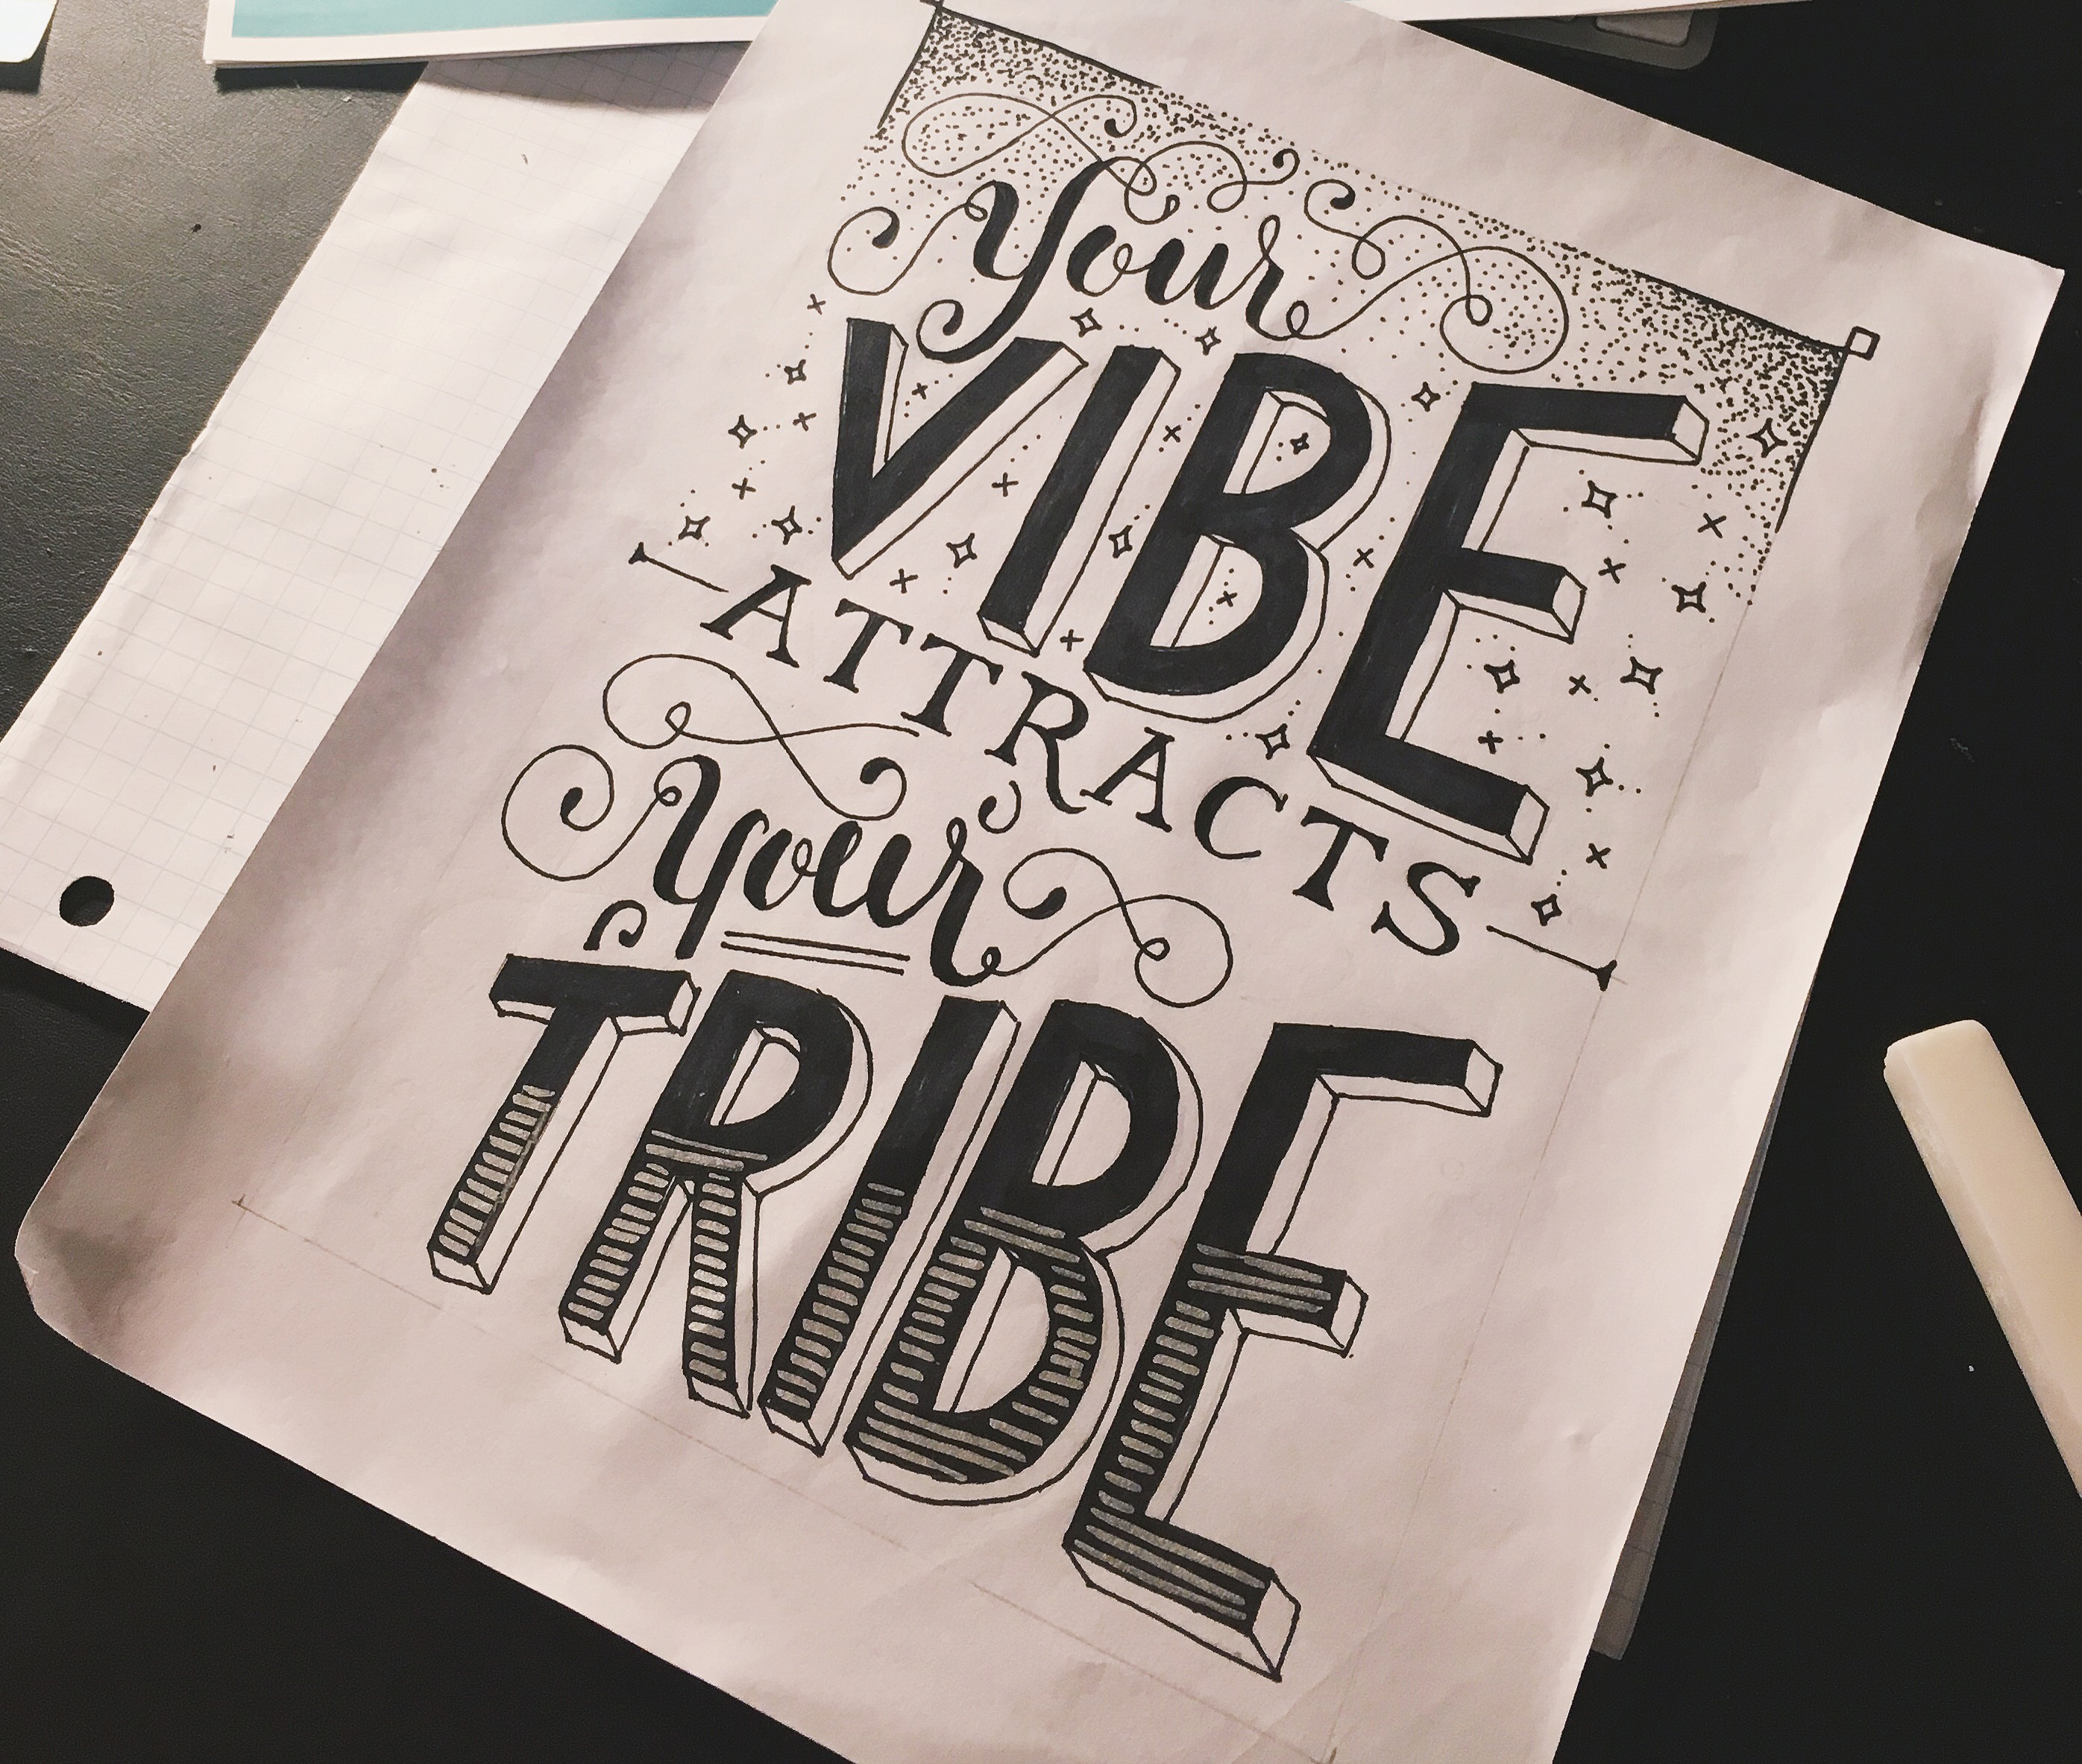 Your
VIBE
ATTRACTS
Your
TRIBE